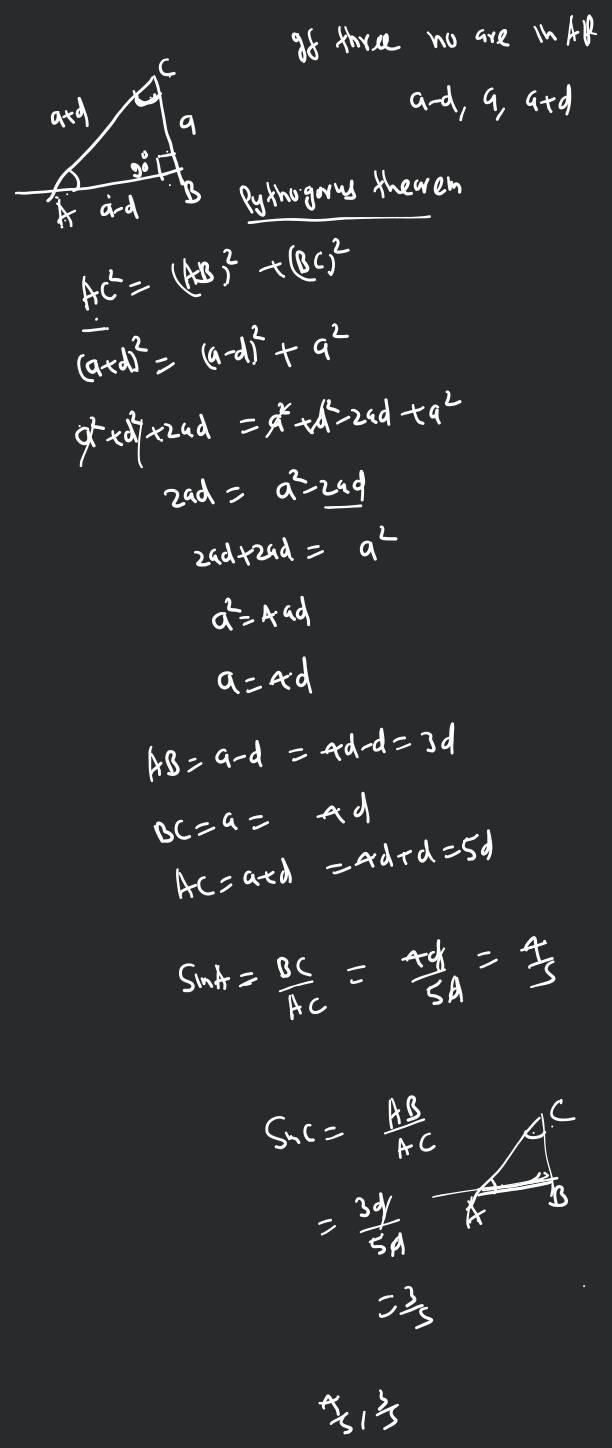 If three no are in AP
a-d, a, a+d
C
a+d
a
90°
A a-d B
Pythogorus theorem
AC² = (AB)² + (BC)²
(a+d)² = (a-d)² + a²
a²+d²+2ad = a²+d²-2ad+a²
2ad = a²-2ad
2ad+2ad = a²
a²=4ad
a=4d
AB = a-d = 4d-d = 3d
BC = a = 4d
AC = a+d = 4d+d = 5d
SinA = BC/AC = 4d/5d = 4/5
SinC = AB/AC
C
A B
= 3d/5d
= 3/5
4/5, 3/5